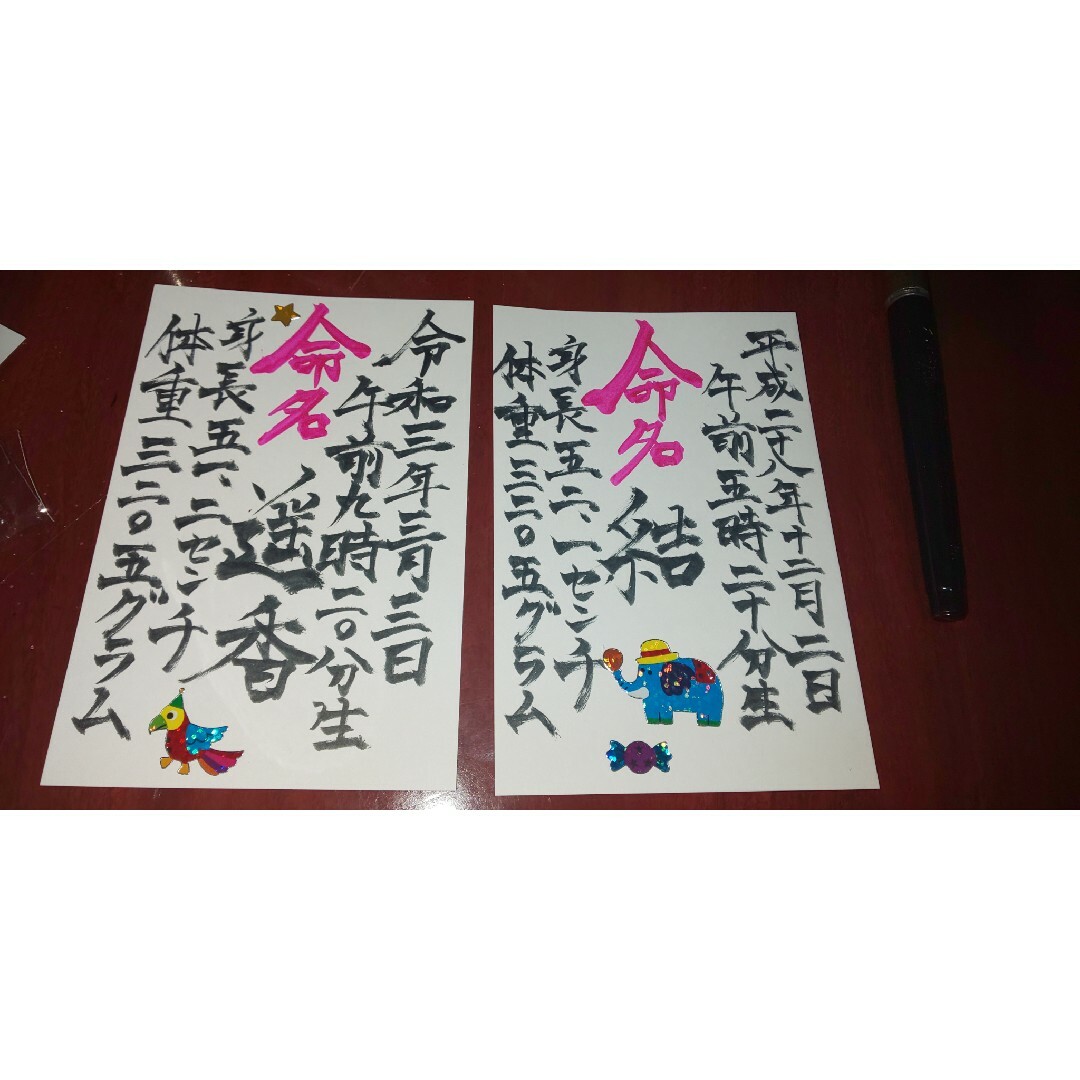 令和三年三月三日
午前九時二〇分生
命名
遥香
身長五一、二センチ
体重三二〇五グラム
平成二十八年十二月二日
午前五時二十分生
命名
結
身長五二、一センチ
体重三二〇五グラム